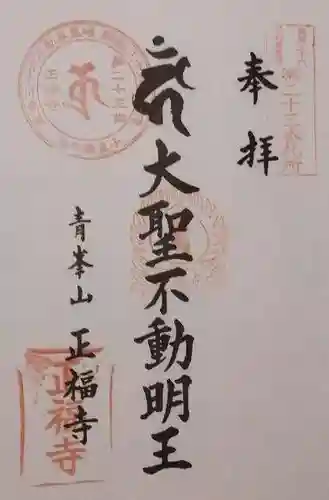 奉拝
大聖不動明王
青峯山 正福寺
第二十三番札所
正福寺